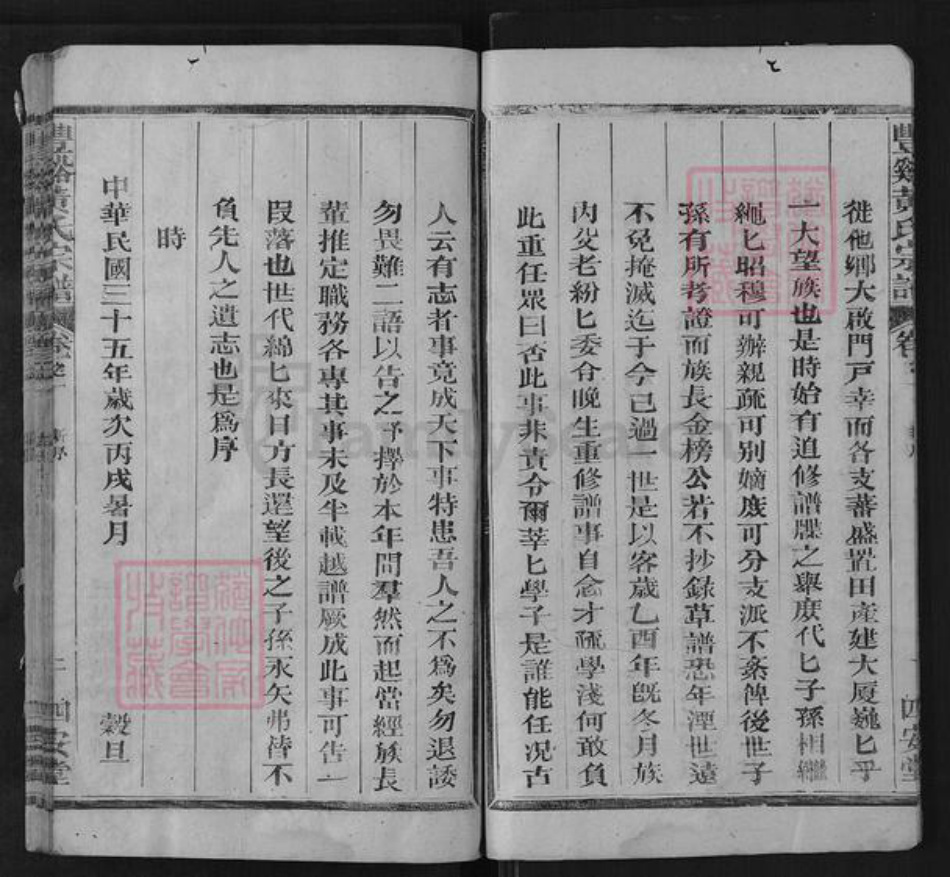 徙他鄉大啟門戸幸而各支蕃盛置田產建大厦巍匕乎
一大望族也是時始有追修譜牒之舉庶代匕子孫相繼
繩匕昭穆可辦親疏可別嫡庻可分支派不紊俾後世子
孫有所考證而族長金榜公若不抄錄草譜恐年湮世遠
不免掩滅迄于今已過一世是以客歲乙酉年旣冬月族
內父老紛匕委命晚生重修譜事自念才疏學淺何敢負
此重任眾曰否此事非責令爾莘匕學子是誰能任况古
人云有志者事竟成天下事特患吾人之不爲矣勿退諉
勿畏難二語以告之予擇於本年間羣然而起當經族長
輩推定職務各專其事未及半載越譜厥成此事可告一
叚落也世代綿匕來日方長還望後之子孫永矢弗替不
負先人之遺志也是爲序
時
中華民國三十五年歲次丙戌暑月 穀旦
豐谿黃氏宗譜 卷 四安堂
豐谿黃氏宗譜 四安堂